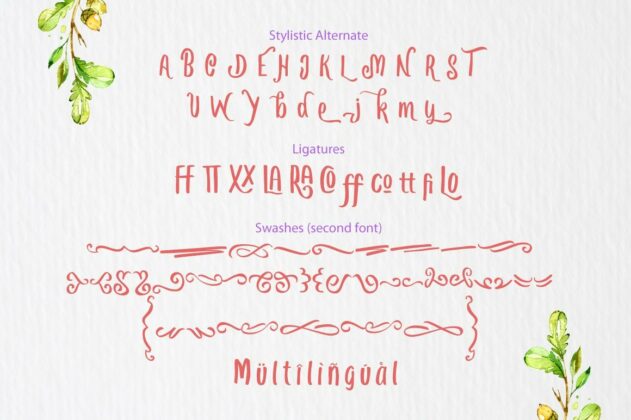 Stylistic Alternate
A B C D E H J K L M N R S T
U W Y b d e j k m y
Ligatures
FF TT XX LA RA CO ff co tt fi Lo
Swashes (second font)
Mültîlìñgůàl